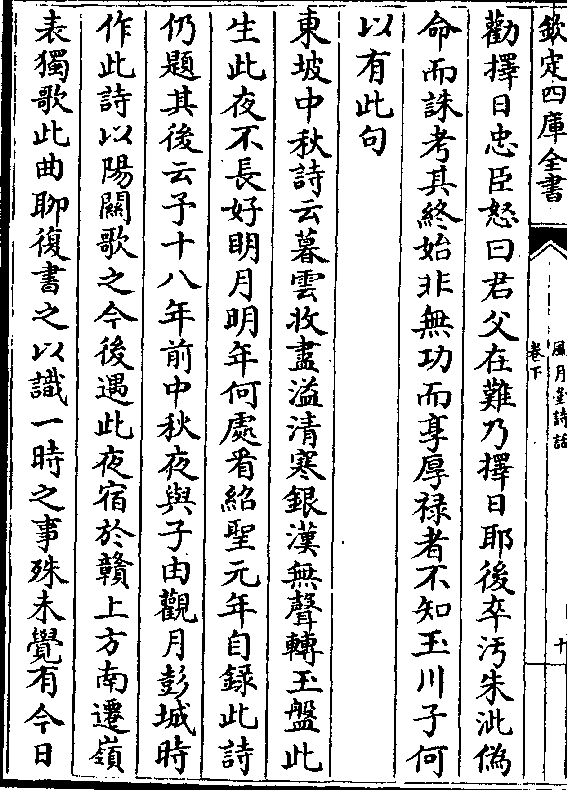 欽定四庫全書
風月堂詩話
卷下
十
勸擇日忠臣怒曰君父在難乃擇日耶後卒汚朱泚偽
命而誅考其終始非無功而享厚禄者不知玉川子何
以有此句
東坡中秋詩云暮雲收盡溢清寒銀漢無聲轉玉盤此
生此夜不長好明月明年何處看紹聖元年自録此詩
仍題其後云予十八年前中秋夜與子由觀月彭城時
作此詩以陽關歌之今後遇此夜宿於贛上方南遷嶺
表獨歌此曲聊復書之以識一時之事殊未覺有今日